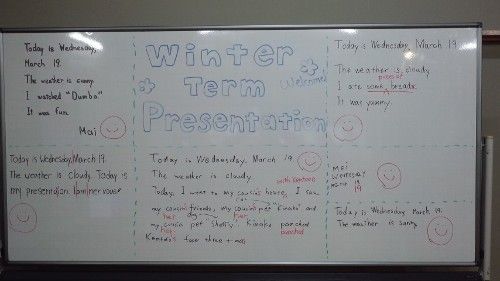 Today is Wednesday,
March 19.
The weather is sunny.
I watched "Dumbo"
It was fun.
Mai
Winter
Term
Welcome!
Presentation
Today is Wednesday, March 19.
The weather is cloudy.
pieces of
I ate some breads.
It was yummy.
Today is Wednesday, March 19.
The weather is cloudy. Today is
my presentation. I am nervous
Today is Wednesday, March 19
The weather is cloudy.
Today, I went to my cousin's house, I saw
my cousin's friends, my cousin's pet
her
her
my cousin pet
punched
face three times
Moi
Wednesday
March 19
19
Today is Wednesday March 19.
The weather is sunny.